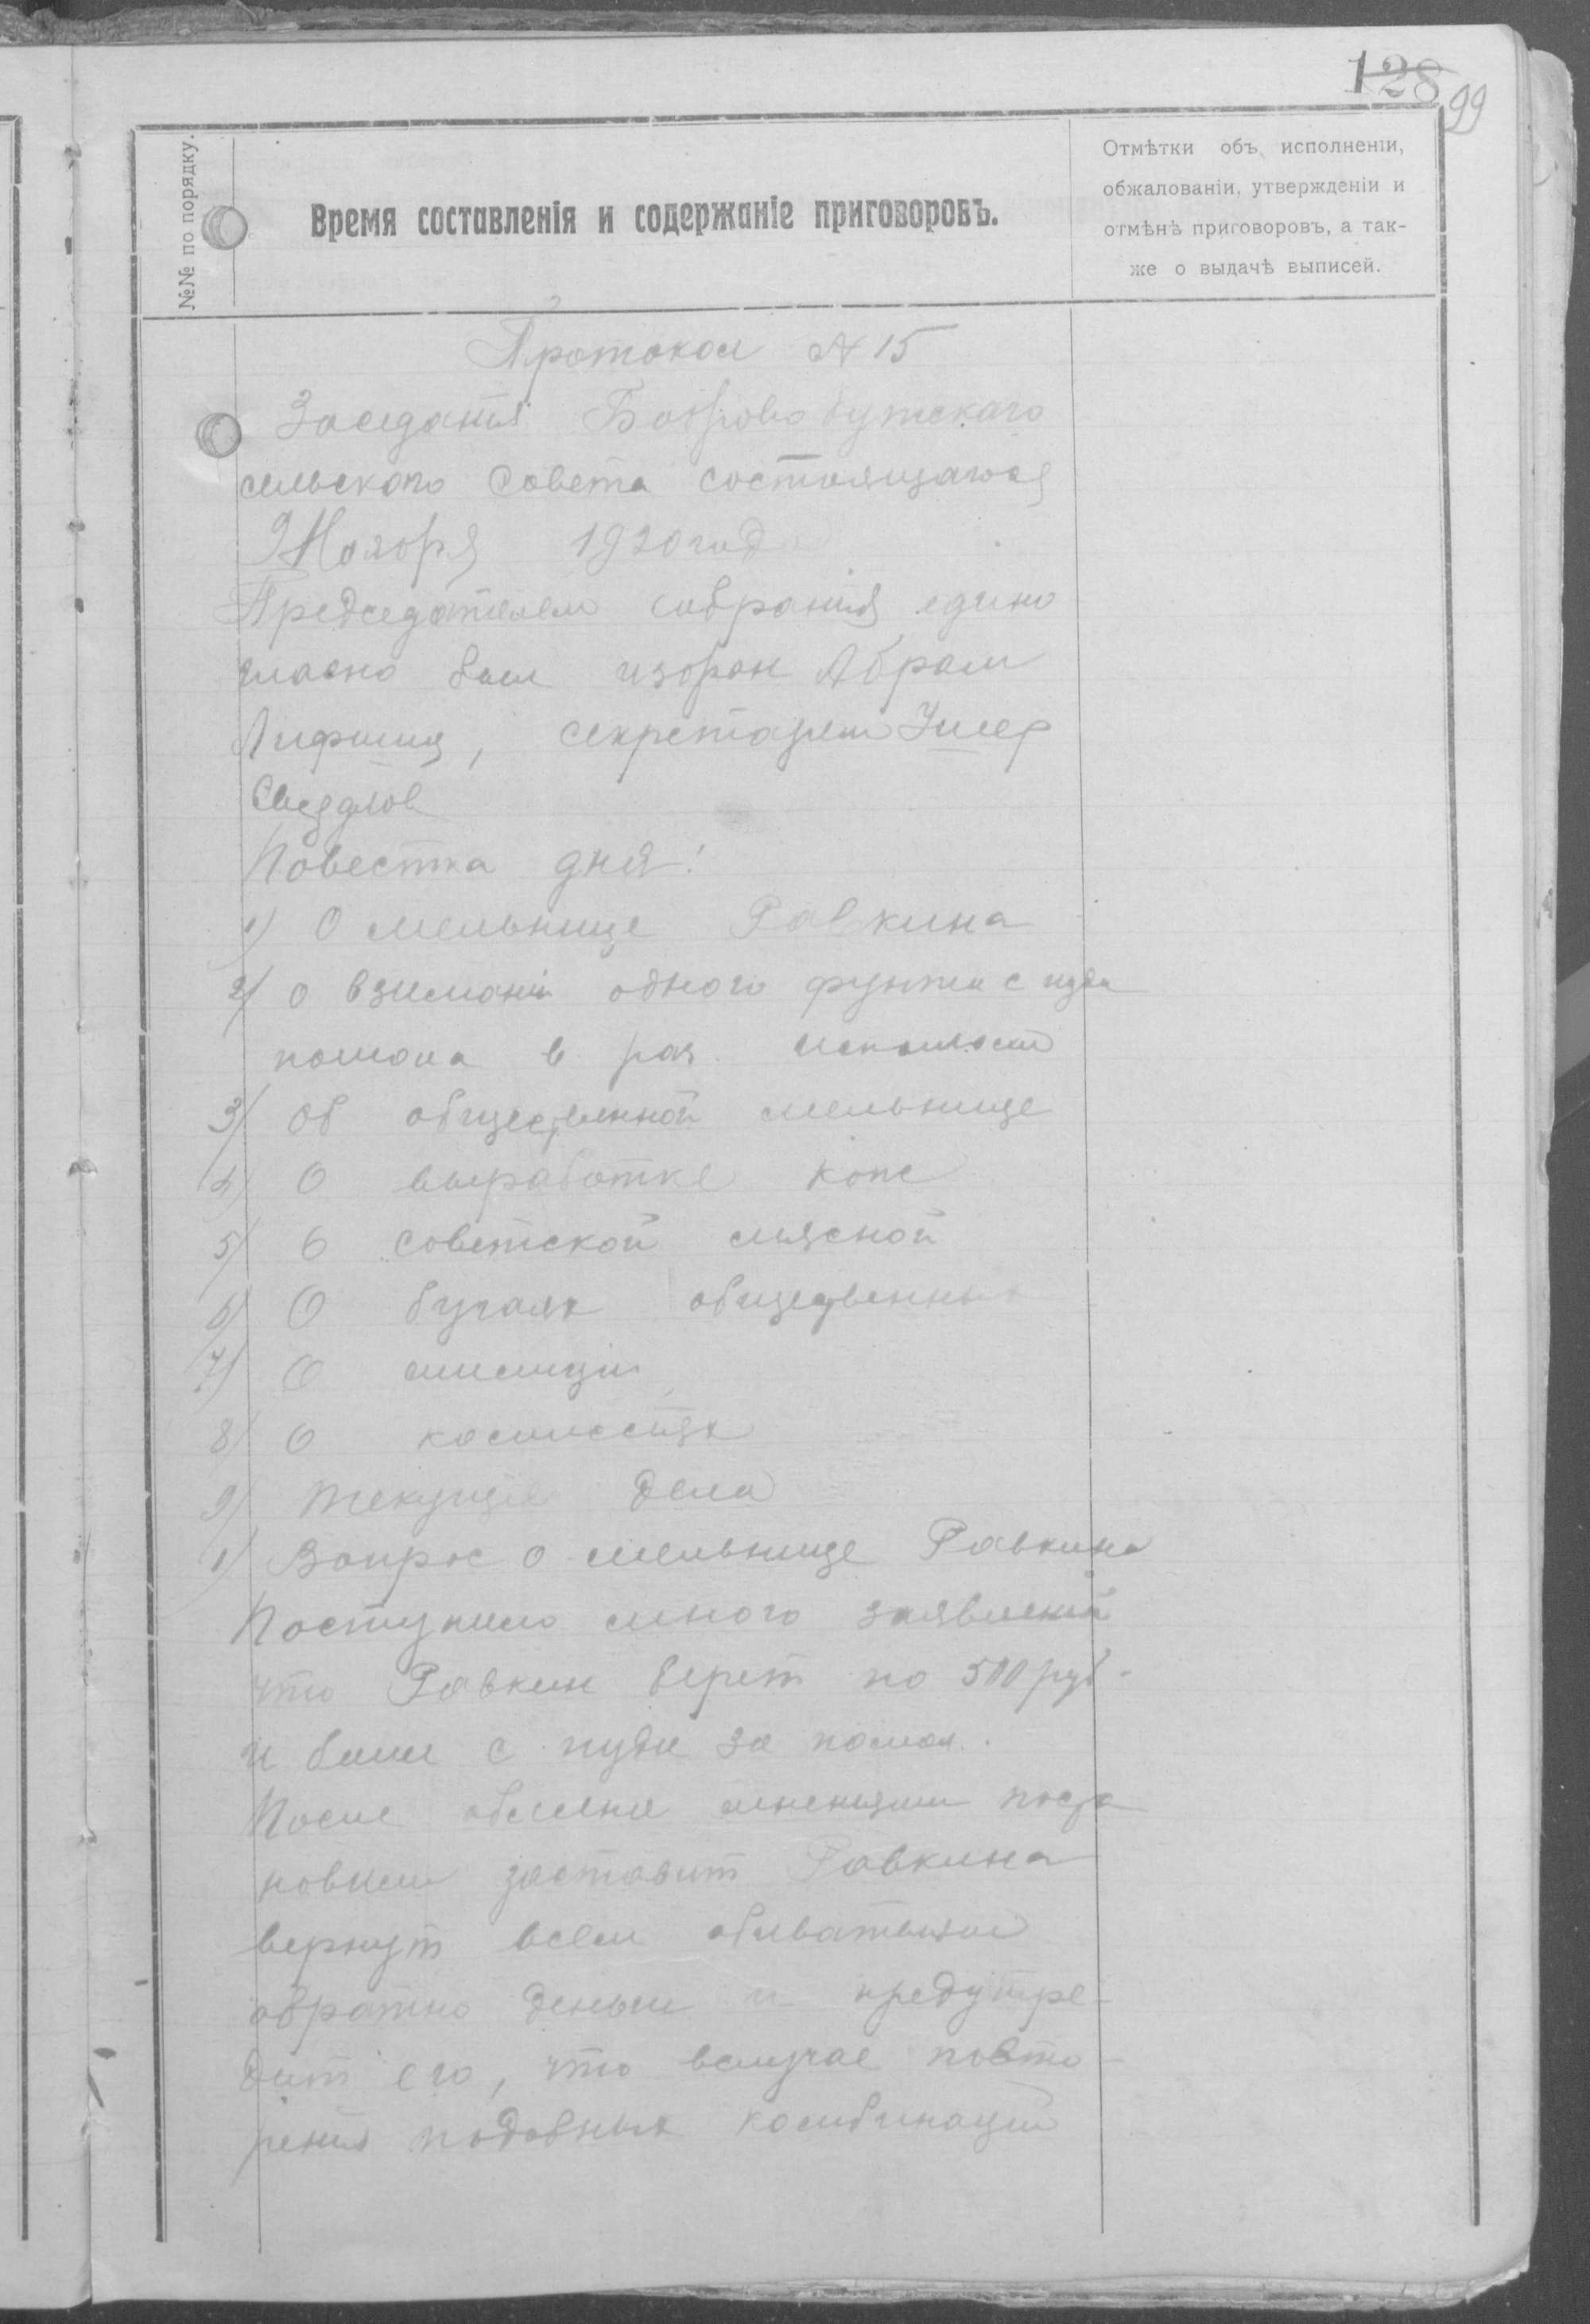 128 99
№№ по порядку.
Время составленія и содержаніе приговоровъ.
Отмѣтки объ исполненіи,
обжалованіи, утвержденіи и
отмѣнѣ приговоровъ, а так-
же о выдачѣ выписей.
Протокол № 15
Заседания Боброво кутскаго
сельского Совета состоящагося
9 Ноября 1920 года
Председателем собрания едино
гласно был избран Абрам
Лифшиц, секретарем Ушер
Свердлов
Повестка дня:
1) О мельнице Равкина
2) о взимании одного фунта с пуда
помола в
3) Об общественной мельнице
4) О выработке
5) О советской мясной
6) О бугаях общественных
7) О милиции
8) О комиссиях
9) Текущие дела
1) Вопрос о мельнице Равкина
Поступило много заявлений
что Равкин берет по 500 руб.
и выше с пуда за помол.
После обмена мнениями поста
новили заставит Равкина
вернут всем обывателям
обратно деньги и предупре-
дит его, что вслучае повто-
рения подобных комбинаций